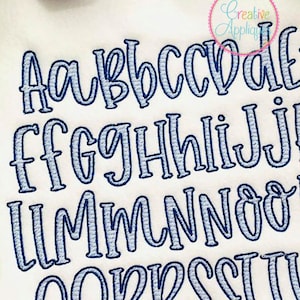 Creative Appliques
AaBbCcDdE
FfGgHhIiJj
LlMmNnOo